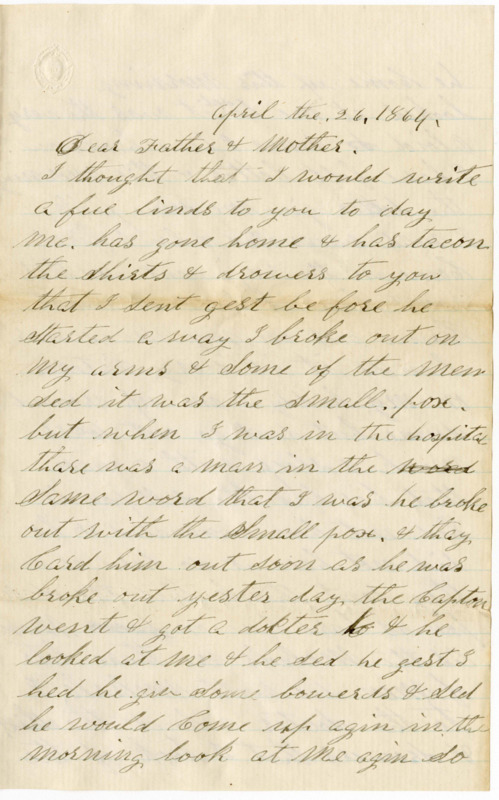 April the. 26, 1864.
Dear Father & Mother.
I thought that I would write
a fue linds to you to day
Mc. has gone home & has tacon
the Shirts & drowers to you
that I sent gest be fore he
Started a way I broke out on
my arms & Some of the men
Sed it was the Small. pox.
but when I was in the hospital
thare was a man in the word
Same word that I was he broke
out with the Small pox. & thay
Card him out Soon as he was
broke out yester day the Capton
went & got a dokter & he
looked at me & he Sed he gest I
hed he giv Some & Sed
he would Come up agin in the
morning look at me agin So